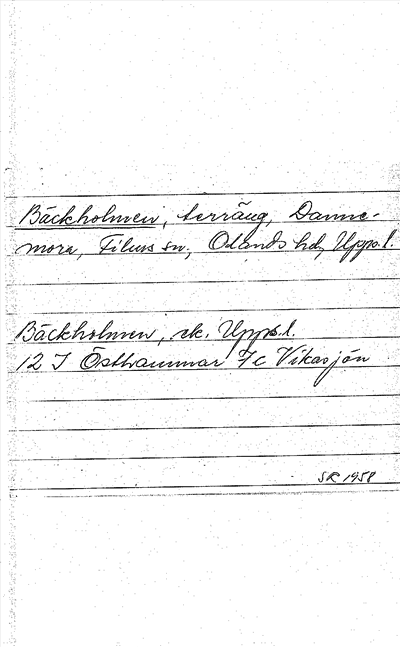 Bäckholmen, terräng, Danne-
mora, Films sn, Olands hd, Uppl.
Bäckholmen, ek. Uppl.
12 I Östhammar 7c Vikasjön
SR 1958